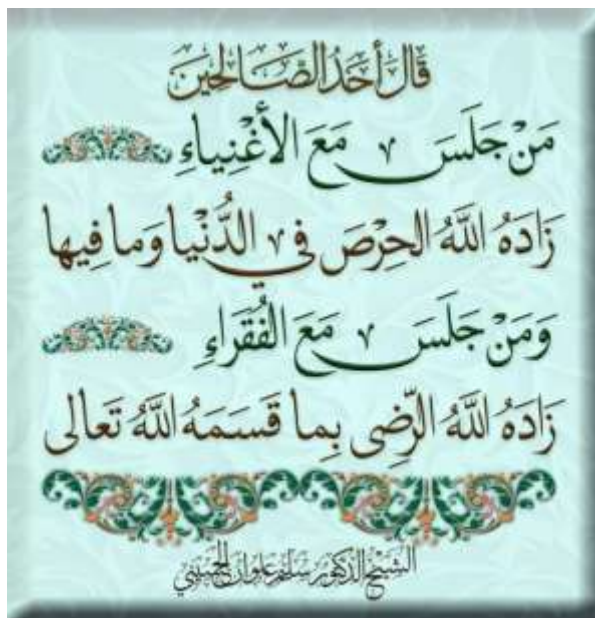 قَالَ أَحَدُ الصَّالِحِينَ
مَنْ جَلَسَ مَعَ الأَغْنِياءِ
زَادَهُ اللَّهُ الحِرْصَ في الدُّنْيا وَما فِيها
وَمَنْ جَلَسَ مَعَ الفُقَرَاءِ
زَادَهُ اللَّهُ الرِّضى بِما قَسَمَهُ اللَّهُ تَعالى
الشيخ الدكتور سليم علوان الحسيني